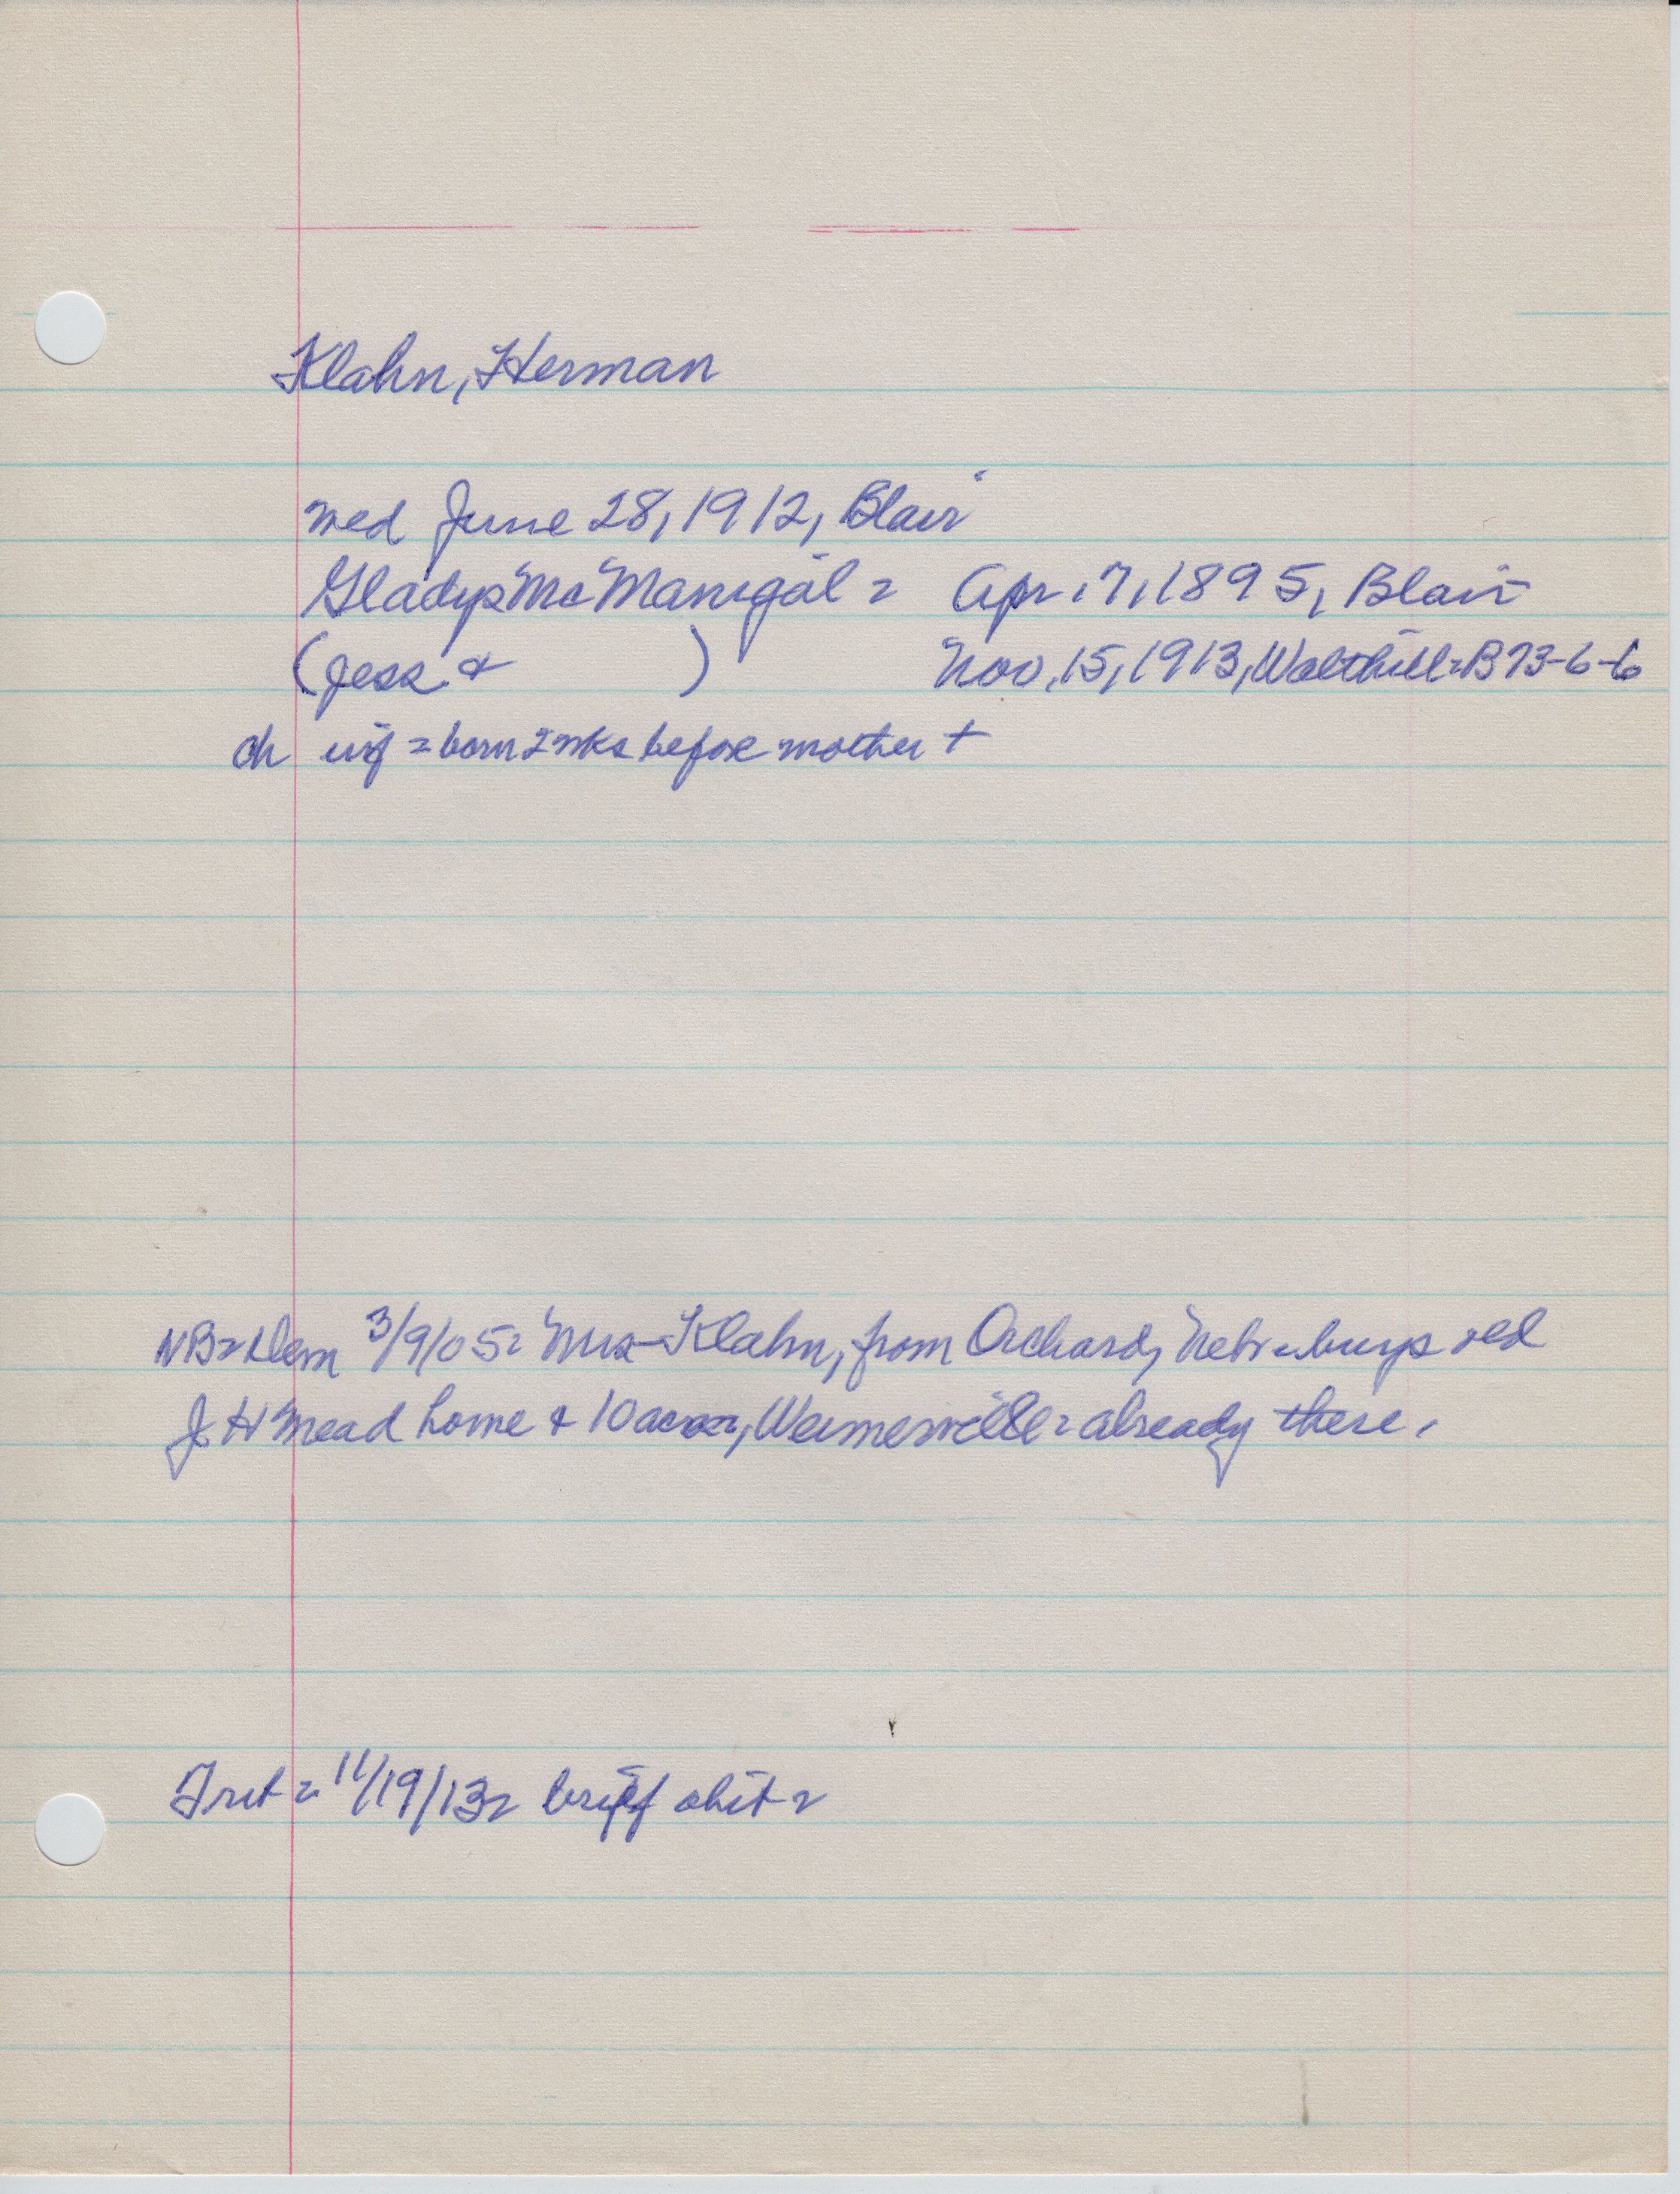 Klahn, Herman
wed June 28, 1912, Blair
Gladys McManigal = Apr. 7, 1895, Blair
(Jess & ) Nov. 15, 1913, Walthill = B 73-6-6
ch inf = born 2 wks before mother +
NB = Dem 3/9/05 = Mrs Klahn, from Orchard, Nebr = buys old
J H Mead home & 10 acres, = already there.
11/19/13 = brief obit =